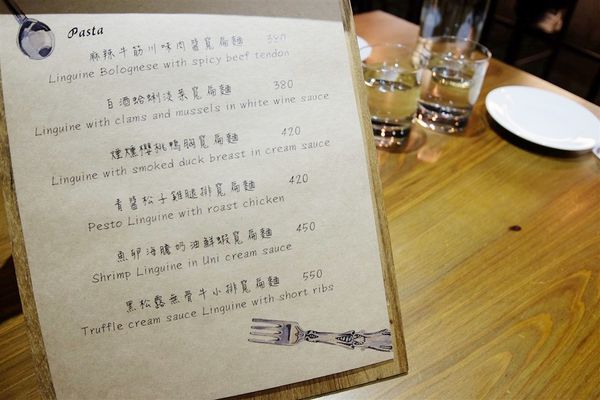 Pasta
麻辣牛筋川味肉醬寬扁麵 380
Linguine Bolognese with spicy beef tendon
白酒蛤蜊淡菜寬扁麵 380
Linguine with clams and mussels in white wine sauce
煙燻櫻桃鴨胸寬扁麵 420
Linguine with smoked duck breast in cream sauce
青醬松子雞腿排寬扁麵 420
Pesto Linguine with roast chicken
魚卵海膽奶油鮮蝦寬扁麵 450
Shrimp Linguine in Uni cream sauce
黑松露無骨牛小排寬扁麵 550
Truffle cream sauce Linguine with short ribs